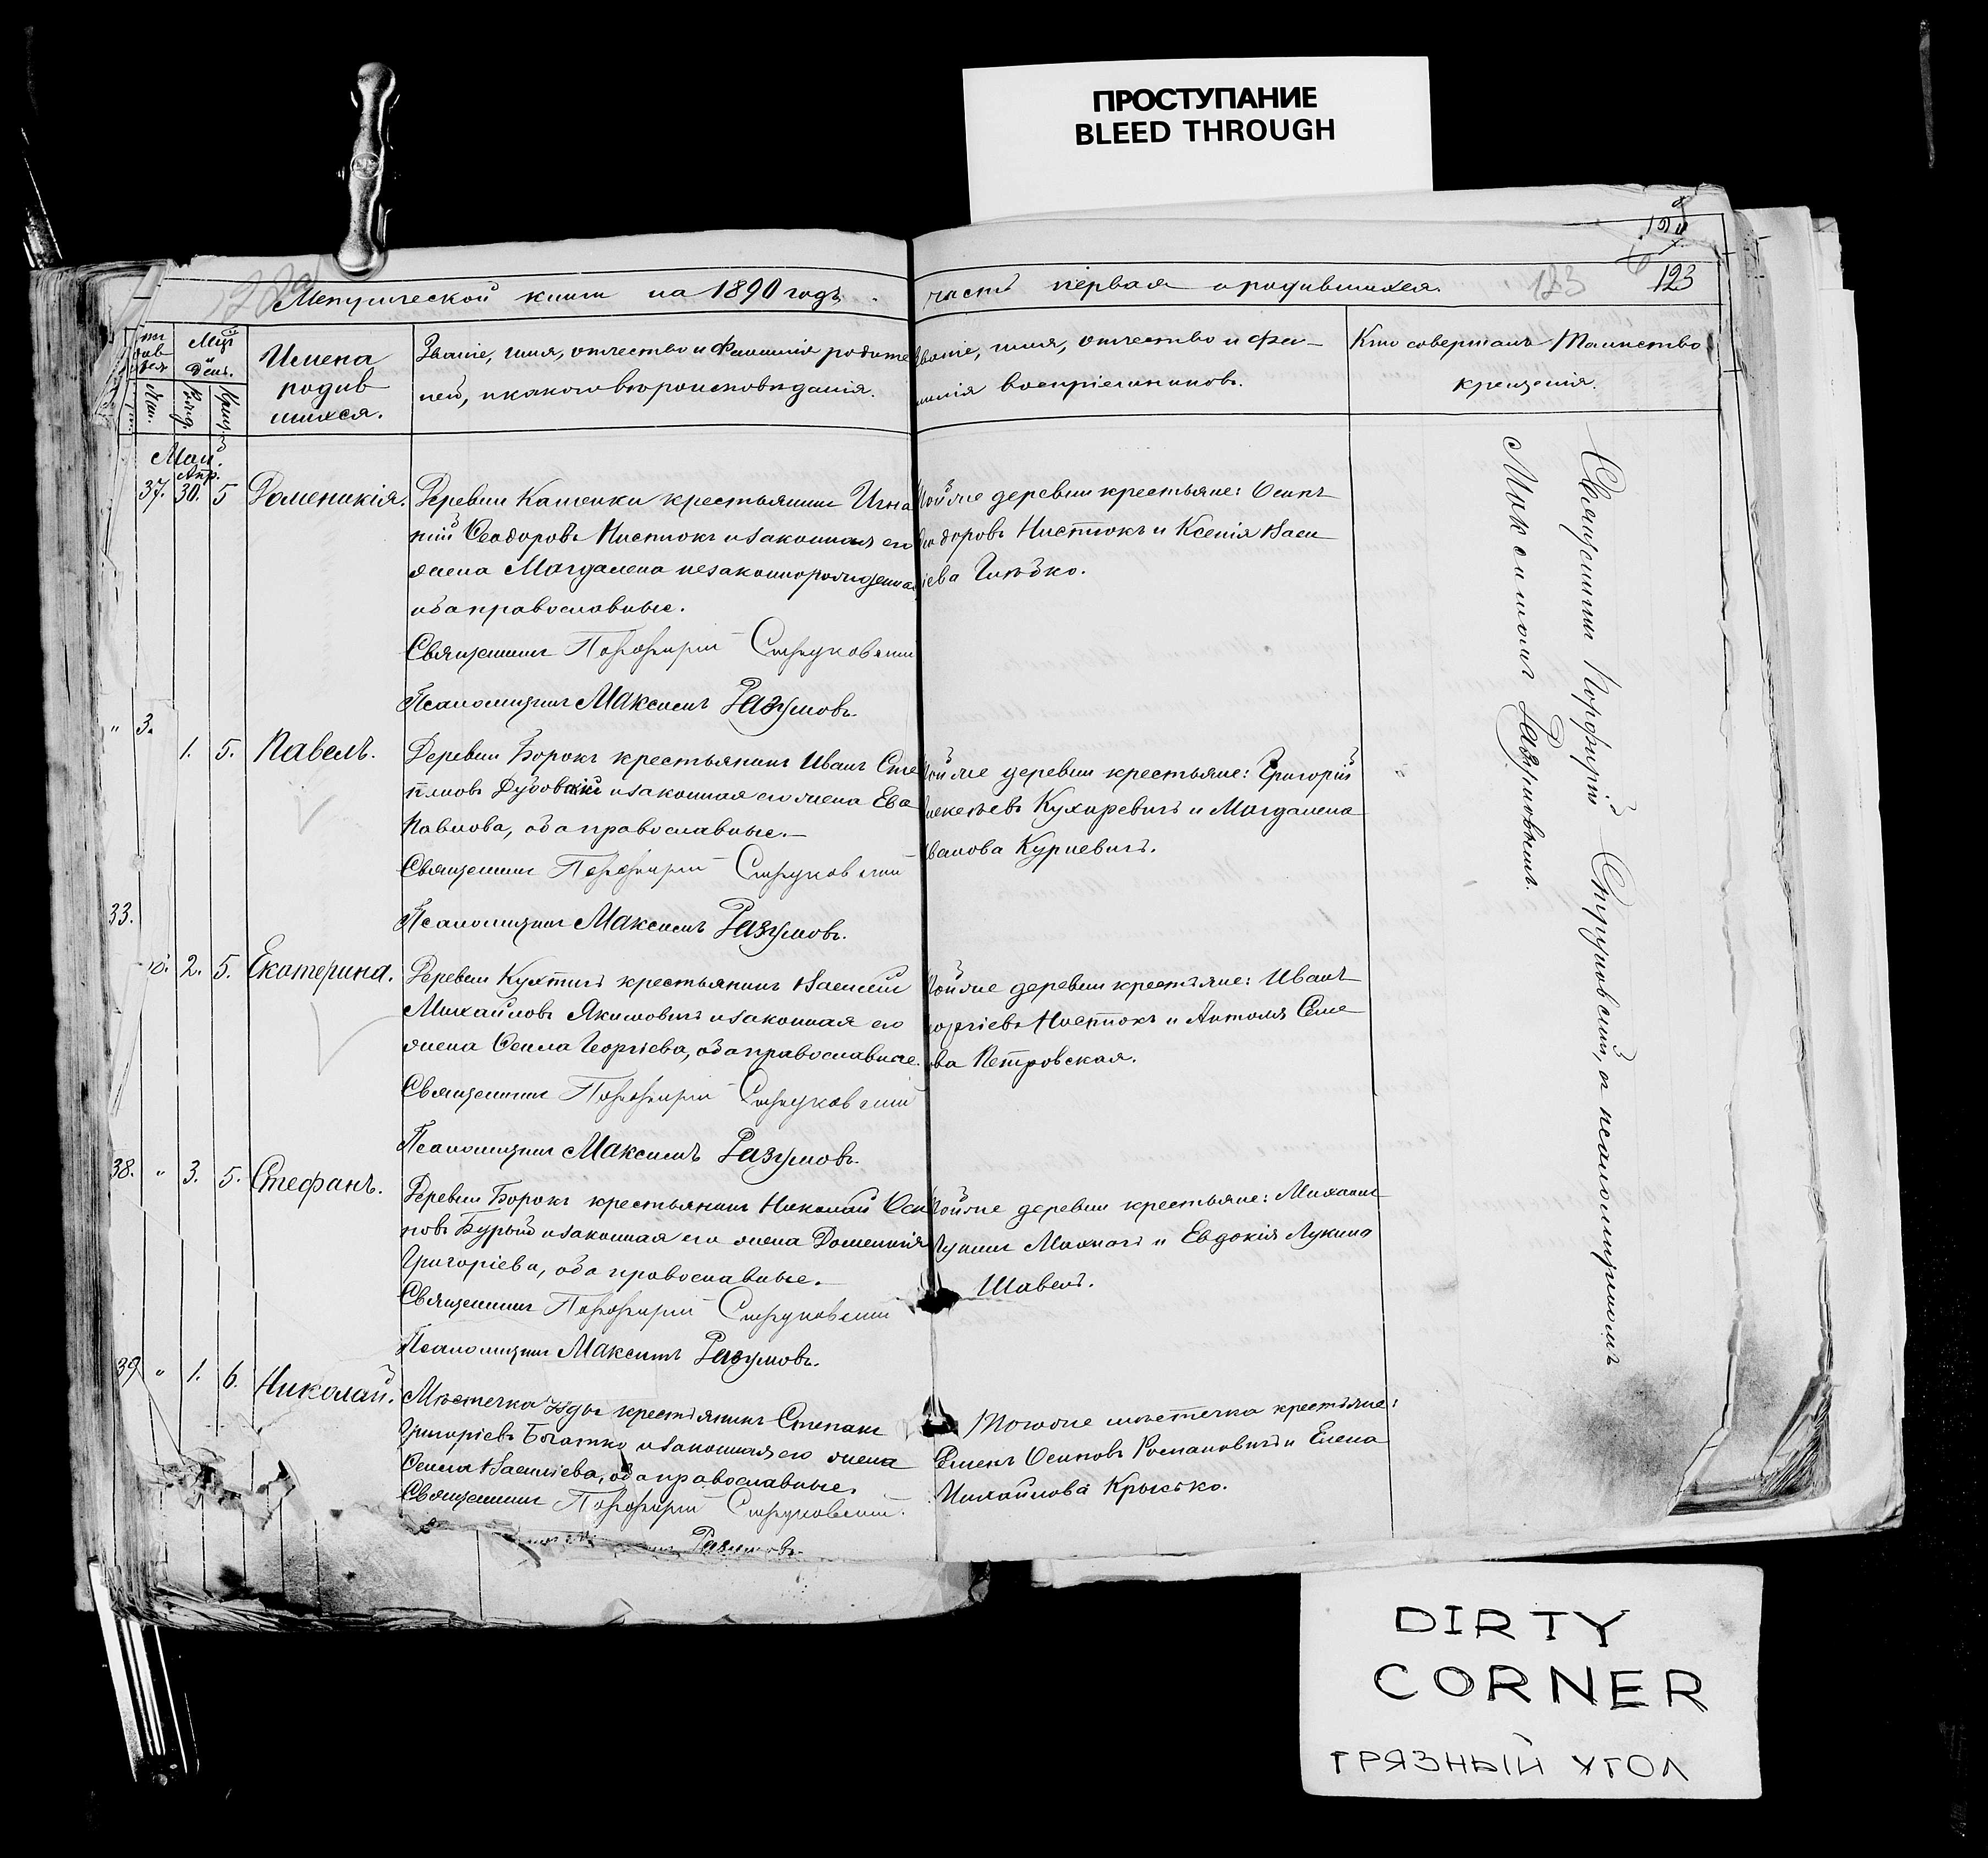 ПРОСТУПАНИЕ
BLEED THROUGH
123
123
Метрической книги на 1890 годъ.
часть первая о родившихся.
Мцъ
и
день.
Имена
родив
шихся.
Званіе, имя, отчество и фамилія родите
лей, и какого вѣроисповѣданія.
Званіе, имя, отчество и фа-
милія воспріемниковъ.
Кто совершалъ Таинство
крещенія.
Май.
Апр.
37. 30. 5 Доменикія.
Деревни Каменки крестьянинъ Игна
тій Ѳеодоровъ Нистюкъ и законная его
жена Магдалена незаконнорожденная
оба православные.
Священникъ Порфирій Струковскій
Псаломщикъ Максимъ Разумовъ.
Тойже деревни крестьяне: Осипъ
Ѳеодоровъ Нистюкъ и Ксенія Васи
ліева
" 3.
1. 5. Павелъ.
Деревни Борокъ крестьянинъ Иванъ Сте
пановъ Дубовскій и законная его жена Ева
Павлова, оба православные.—
Священникъ Порфирій Струковскій
Псаломщикъ Максимъ Разумовъ.
Тойже деревни крестьяне: Григорій
Кухаревичъ и Магдалена
Иванова Курневичъ.
33.
2. 5. Екатерина.
Деревни Кухтичъ крестьянинъ Василій
Михайловъ Якимовичъ и законная его
жена Ѳекла Георгіева, оба православные.
Священникъ Порфирій Струковскій
Псаломщикъ Максимъ Разумовъ.
Тойже деревни крестьяне: Иванъ
Георгіевъ Нистюкъ и Антоля Семе
нова Петровская.
38. " 3. 5. Стефанъ.
Деревни Борокъ крестьянинъ Николай Оси
повъ Бурый и законная его жена Доменикія
Григоріева, оба православные.—
Священникъ Порфирій Струковскій
Псаломщикъ Максимъ Разумовъ.
Тойже деревни крестьяне: Михаилъ
Лукинъ Махначъ и Евдокія Лукина
Шавель.
39 " 1. 6. Николай.
Мѣстечка Узды крестьянинъ Степанъ
Григорьевъ Богатко и законная его жена
Ѳекла Васильева, оба православные.
Священникъ Порфирій Струковскій.
Разумовъ.
Тогоже мѣстечка крестьяне:
Семенъ Осиповъ Романовичъ и Елена
Михайлова Крысько.
Священникъ Порфирій Струковскій, съ псаломщикомъ
Максимомъ Разумовымъ.
DIRTY
CORNER
ГРЯЗНЫЙ УГОЛ